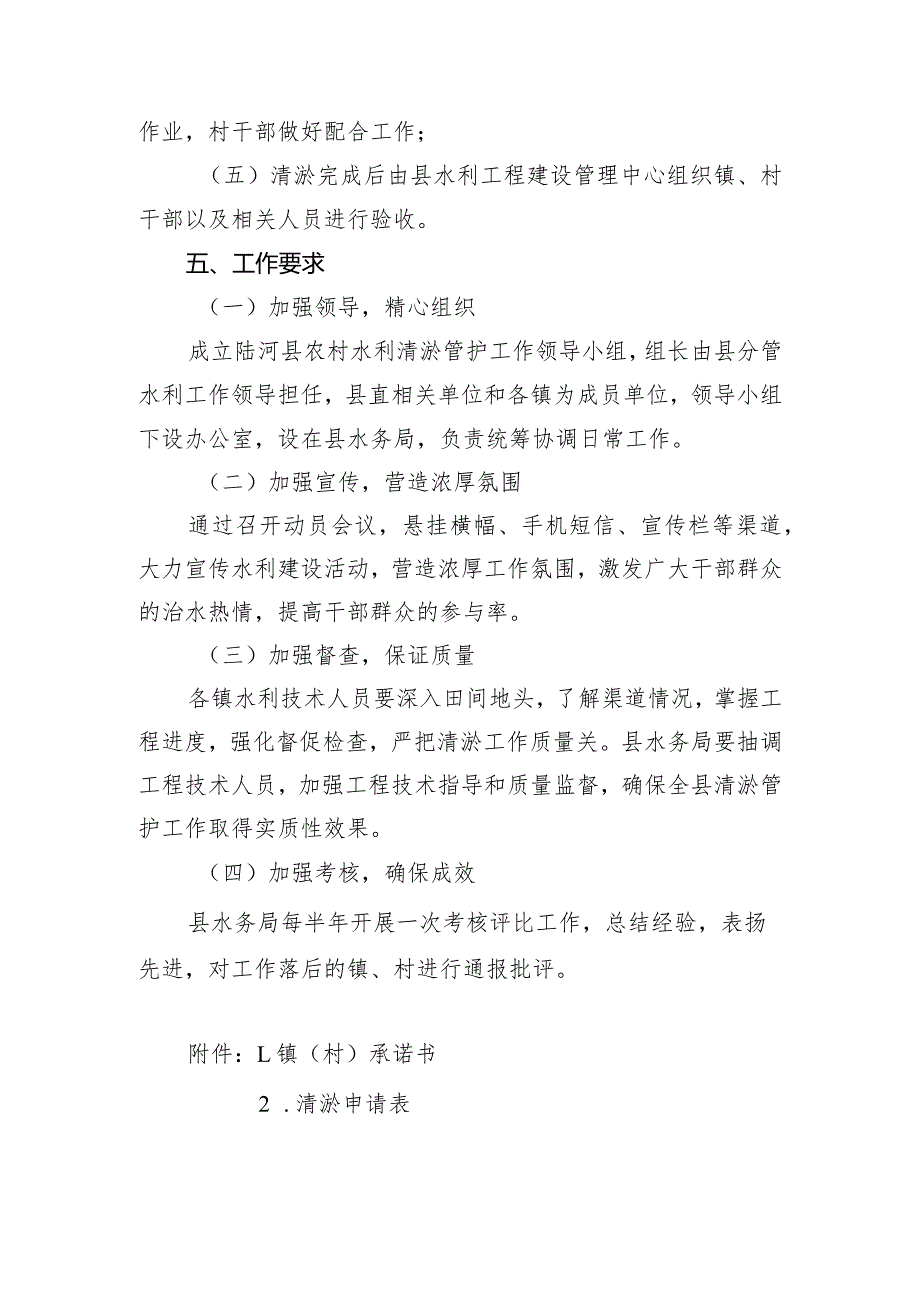 作业，村干部做好配合工作；
（五）清淤完成后由县水利工程建设管理中心组织镇、村
干部以及相关人员进行验收。
五、工作要求
（一）加强领导，精心组织
成立陆河县农村水利清淤管护工作领导小组，组长由县分管
水利工作领导担任，县直相关单位和各镇为成员单位，领导小组
下设办公室，设在县水务局，负责统筹协调日常工作。
（二）加强宣传，营造浓厚氛围
通过召开动员会议，悬挂横幅、手机短信、宣传栏等渠道，
大力宣传水利建设活动，营造浓厚工作氛围，激发广大干部群众
的治水热情，提高干部群众的参与率。
（三）加强督查，保证质量
各镇水利技术人员要深入田间地头，了解渠道情况，掌握工
程进度，强化督促检查，严把清淤工作质量关。县水务局要抽调
工程技术人员，加强工程技术指导和质量监督，确保全县清淤管
护工作取得实质性效果。
（四）加强考核，确保成效
县水务局每半年开展一次考核评比工作，总结经验，表扬
先进，对工作落后的镇、村进行通报批评。
附件：L镇（村）承诺书
2 .清淤申请表